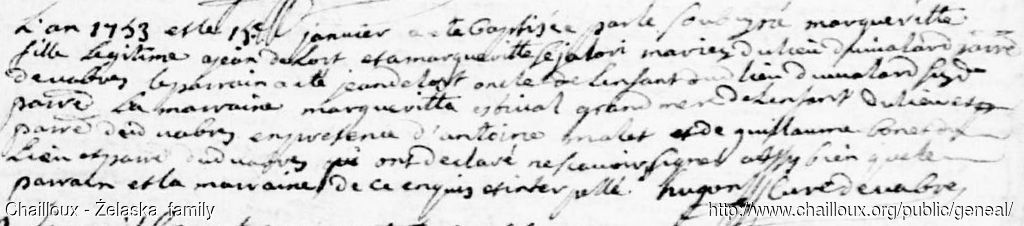 L'an 1753 et le 15e janvier a ete Baptisée par le soubsigné margueritte
fille legitime a jean delort et a margueritte sejalon mariez du lieu du vialard parre
de vabres le parrain a ete jean delort oncle de l'enfant du dlieu du vialard susde
parre La marraine margueritte estival grand mere de l'enfant du lieu et
parre du d vabres en presence d'antoine malet et de guillaume bonet du
Lieu et parre dud vabres qui ont declaré ne scavoir signer aussy bien que le
parrain et la marraine de ce enquis et interpellé. hugon Curé de vabres
Chailloux - Żelaska family
http://www.chailloux.org/public/geneal/